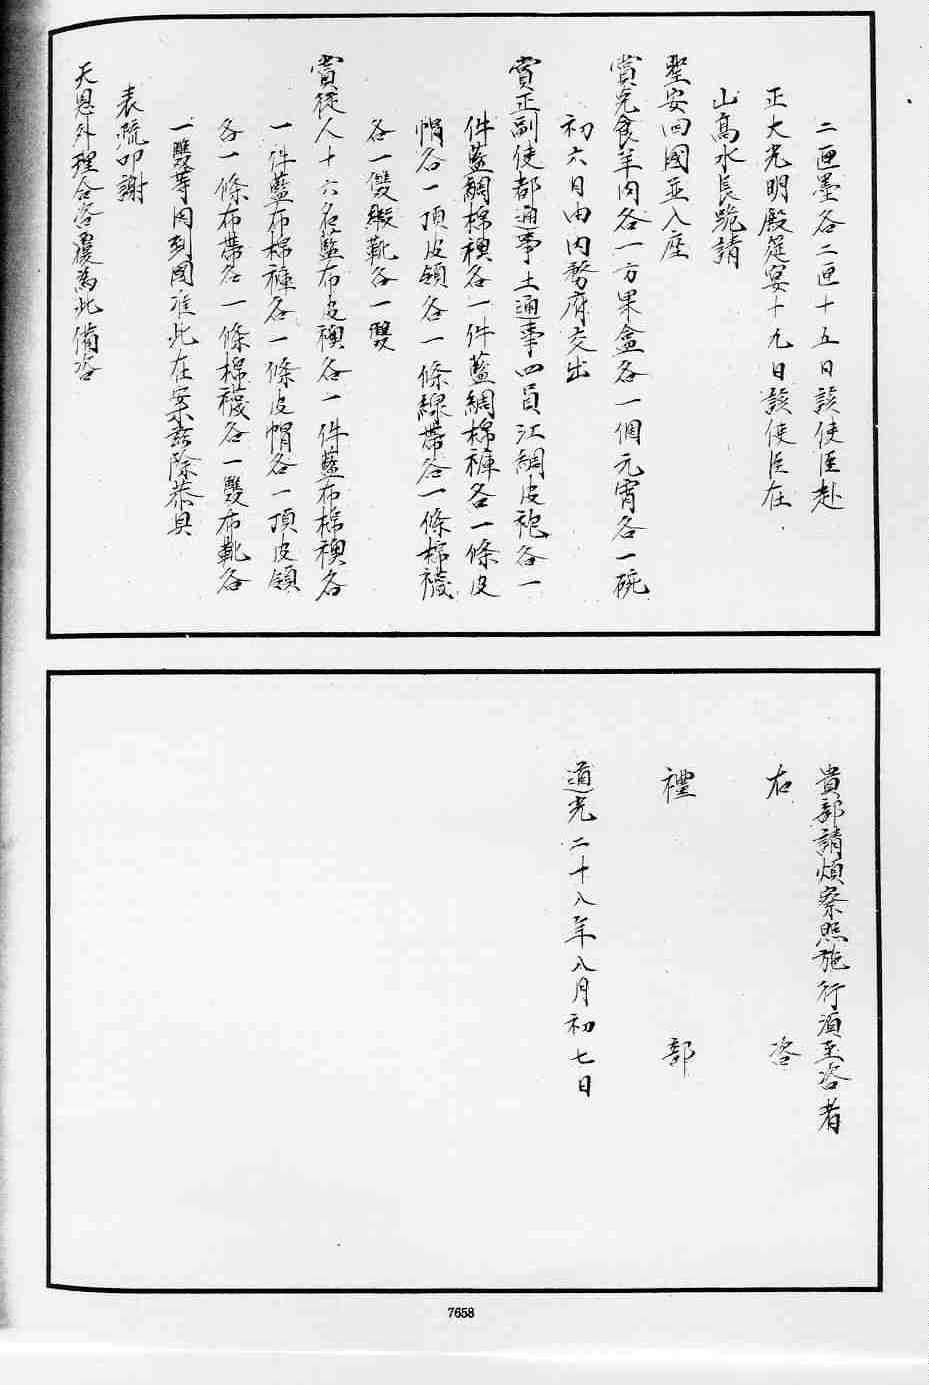 二匣墨各二匣十五日該使臣赴
正大光明殿筵宴十九日該使臣在
山高水長跪請
聖安四國並入座
賞克食羊肉各一方果盒各一個元宵各一碗
初六日由内務府交出
賞正副使都通事土通事四員江綢皮袍各一
件藍綢棉襖各一件藍綢棉褲各一條皮
帽各一頂皮領各一條線帶各一條棉襪
各一雙緞靴各一雙
賞從人十六名藍布皮襖各一件藍布棉襖各
一件藍布棉褲各一條皮帽各一頂皮領
各一條布帶各一條棉襪各一雙布靴各
一雙等因到國准此在案茲除恭具
表疏叩謝
天恩外理合咨覆為此備咨
貴部請煩察照施行須至咨者
右咨
禮部
道光二十八年八月初七日
7658